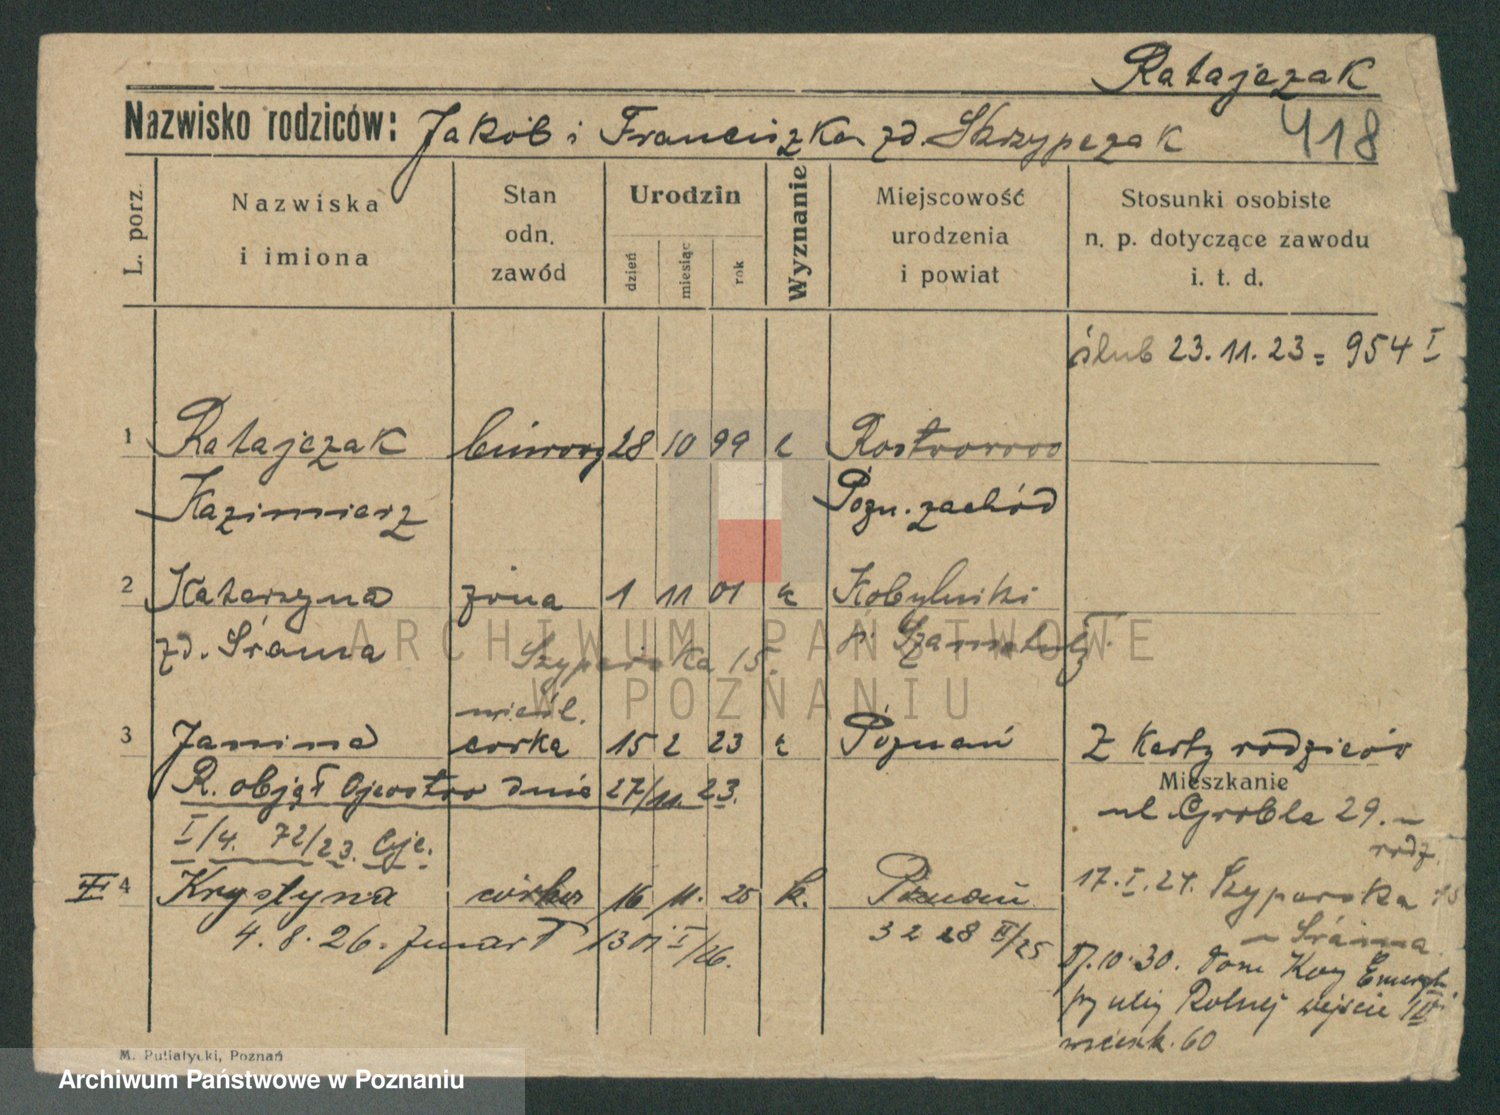 Ratajczak
Nazwisko rodziców: Jakób i Franciszka zd. Skrzypczak 418
L. porz.
Nazwiska i imiona
Stan odn. zawód
Urodzin
dzień miesiąc rok
Wyznanie
Miejscowość urodzenia i powiat
Stosunki osobiste n. p. dotyczące zawodu i. t. d.
ślub 23.11.23 = 954 I
1 Ratajczak 28 10 99 k Rostworowo
Kazimierz Pozn. zachód
2 Katarzyna żona 1 11 01 k Kobylniki
zd. Śrama Szyperska 15. p. Szamotuły
nieśl.
3 Janina corka 15 2 23 k Poznań Z karty rodziców
R. objął Ojcostwo dnia 27/11. 23.
Mieszkanie
ul Grobla 29. –
I/4. 72/23. Ojc. rodz.
4 Krystyna córka 16 11. 25 k. Poznań
17.I.24. Szyperska 15
4.8.26. zmarł 1301 I/26. 3228 III/25
– Śrama
17.10.30. dom Kay Emeryt.
przy ulicy Rolnej wejście III
mieszk. 60
M. Putiatycki, Poznań
ARCHIWUM PAŃSTWOWE
W POZNANIU
Archiwum Państwowe w Poznaniu